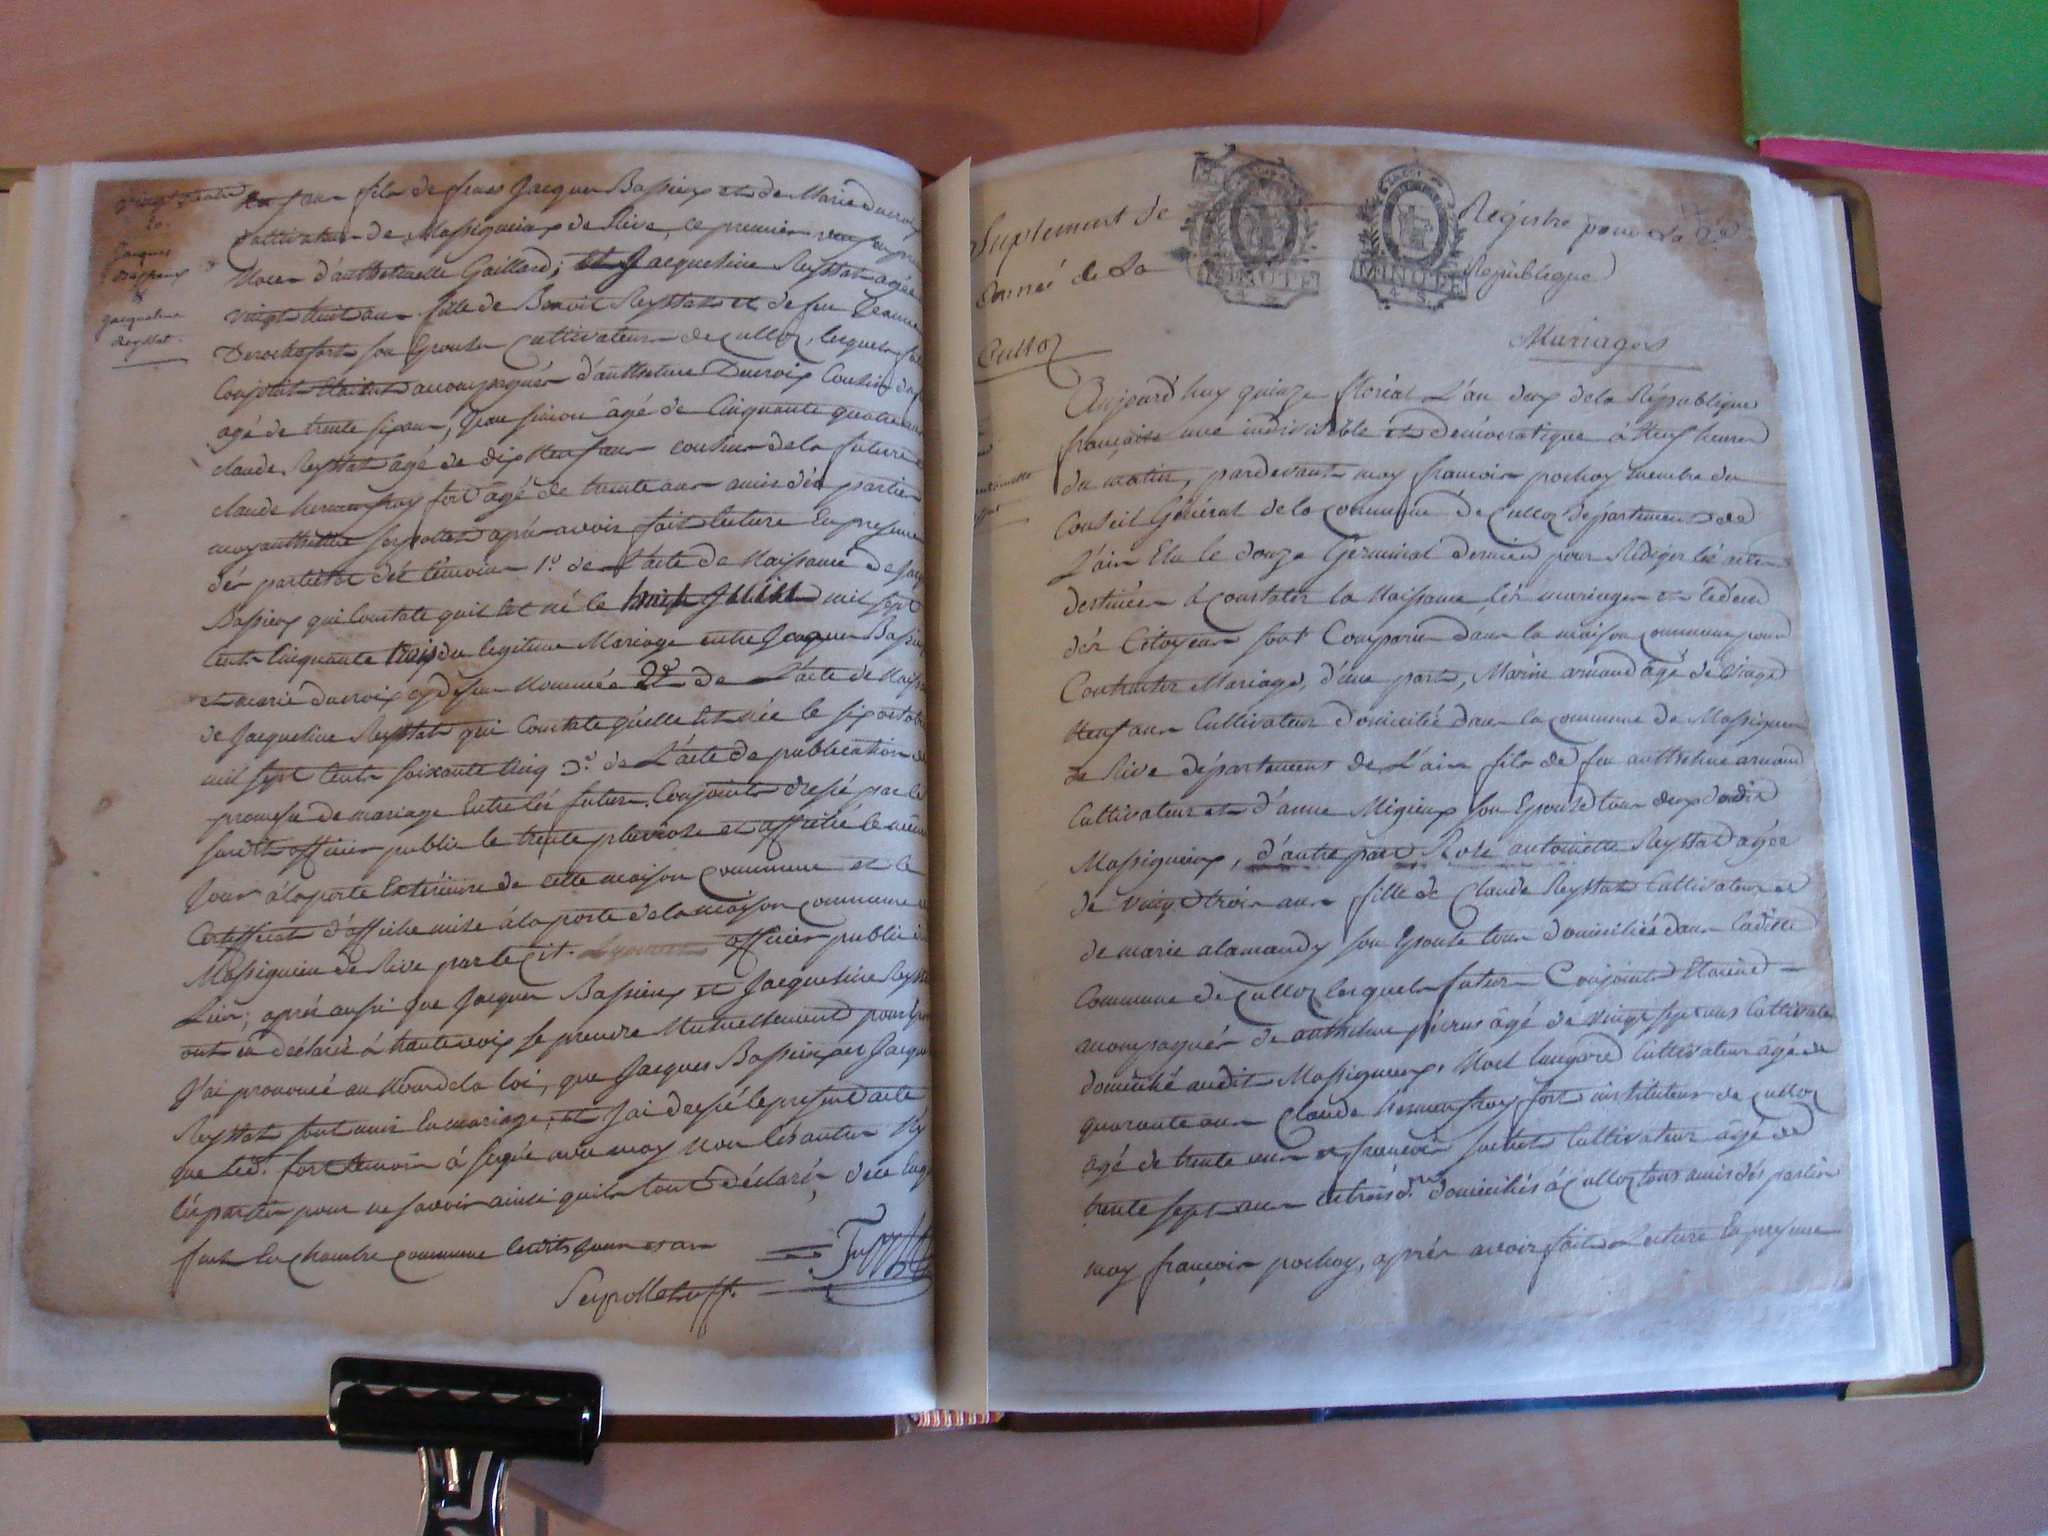 Jacques
Bassieux
&
Jacqueline
Reystat
ans fils de feues Jacques Bassieux et de Marie Ducroix
cultivateur de Massignieux de Rive, ce premier
Noces d'anthelmette Gaillard; et Jacqueline Reystat agée
vingt huit ans fille de Benoit Reystat et de feu Jeanne
Derochefort son Epouse Cultivateurs de Culloz, lesquels futurs
Conjoints Etoient accompagnés d'anthelme Ducroix Cousin
agé de trente six ans, Jean simon âgé de Cinquante quatre ans
claude Reystat agé de dix Neuf ans cousins de la future
claude hermenfroy fort agé de trente ans amis dés parties
moy anthelme Seypollet après avoir fait lecture En presence
dés parties et dés témoins 1.º de L'acte de Naissance de
Bassieux qui Constate quil Est né le mil sept
Cents Cinquante trois du legitime Mariage entre Jacques Bassieux
et marie ducroix cy dessus Nommés 2º de L'acte de Naiss
de Jacqueline Reystat qui Constate qu'elle Est née le six octobre
mil sept Cents soixante Cinq 3.º de L'acte de publication de
promesse de mariage Entre lés futurs Conjoints dressé par le
susdit officier public le trente pluviose et affiché le même
Jour à la porte Extérieure de cette maison Commune et le
Certifficat d'affiche mise à la porte de la maison Commune
Massignieu de Rive par le Cit. officier public
Lieu; après aussi que Jacques Bassieux et Jacqueline Reystat
ont eu déclaré à haute voix se prendre Mutuellement pour
J'ai prononcé au Nom de la loi, que Jacques Bassieux et Jacqueline
Reystat sont unis En mariage, et J'ai dressé le présent acte
que led. fort temoin à signé avec moy Non lés autres Ny
lés parties pour ne savoir ainsi quils l'ont déclaré, de ce Enquis
fait En Chambre Commune lesdits Jour et an
Seypollet off.
Suplement de Registre pour La 2e
Année de La République
Culloz
Mariages
Aujourd'huy quinze floréal L'an deux de la République
française une indivisible et démocratique à Neuf heures
du matin, pardevant moy françois pochoy membre du
Conseil Général de la Commune de Culloz département de
L'ain Elu le douze Germinal dernier pour Rédiger lés actes
destinés à Constater la Naissance, lés mariages et le décés
dés Citoyens sont Comparus dans la maison Commune pour
Contracter Mariage, d'une part, Marin arnaud âgé de Vingt
Neuf ans Cultivateur domicilié dans la Commune de Massignieu
de Rive département de L'ain fils de feu anthelme arnaud
Cultivateur et d'anne Migieux son Epouse tous deux dudit
Massignieux, d'autre part Rose antoinette Reystat agée
de vingt trois ans fille de Claude Reystat Cultivateur et
de marie alamandy son Epouse tous domiciliés dans ladite
Commune de Culloz lesquels futurs Conjoints Etoient
accompagnés de anthelme pécrus âgé de vingt sept ans Cultivateur
domicilié audit Massignieux, Noel laugard Cultivateur âgé de
quarante ans Claude hermenfroy fort instituteur de Culloz
âgé de trente ans et françois Cultivateur âgé de
trente sept ans domiciliés à Culloz tous amis dés parties
moy françois pochoy, après avoir fait Lecture En presence